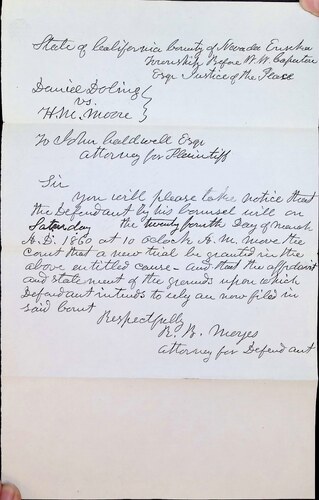 State of California County of Nevada Eureka
Township Before W. W. Caperton
Esqr Justice of the Pease
Daniel Doling
vs.
H. M. Moore
To John Caldwell Esqr
Attorney for Plaintiff
Sir
You will please take notice that
the Defendant by his Counsel will on
Saturday the twenty fourth Day of March
A. D. 1860 at 10 oclock A. M. move the
Court that a new trial be granted in the
above entitled cause - and that the affidavit
and statement of the grounds upon which
Defendant intends to rely are now filed in
said Court
Respectfully
R. B. Moyes
Attorney for Defendant